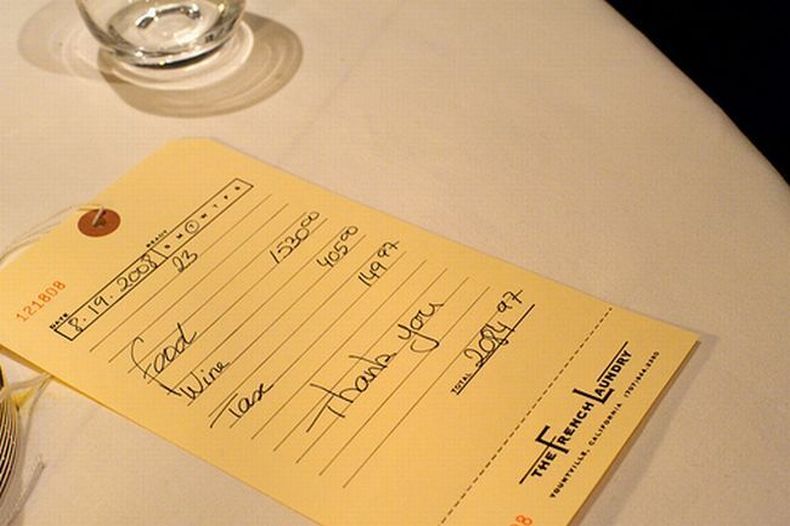 121808
DATE 8.19.2008 READY S M T W T F S
23
Food 1530 00
Wine 405 00
Tax 149 97
Thank you
TOTAL 2084 97
THE FRENCH LAUNDRY
YOUNTVILLE, CALIFORNIA (707) 944-2380